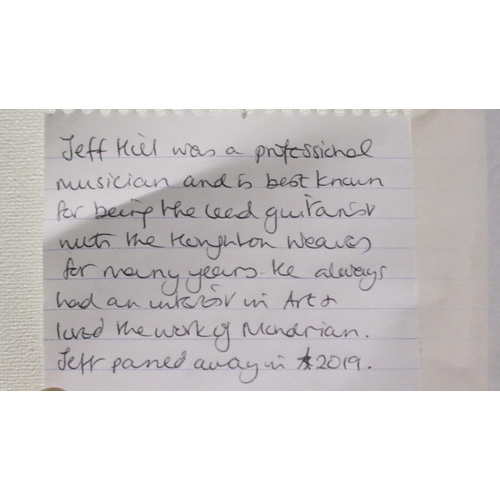 Jeff Hill was a professional
musician and is best known
for being the lead guitarist
with the Houghton Weavers
for many years. He always
had an interest in Art &
loved the work of Mondrian.
Jeff passed away in 2019.